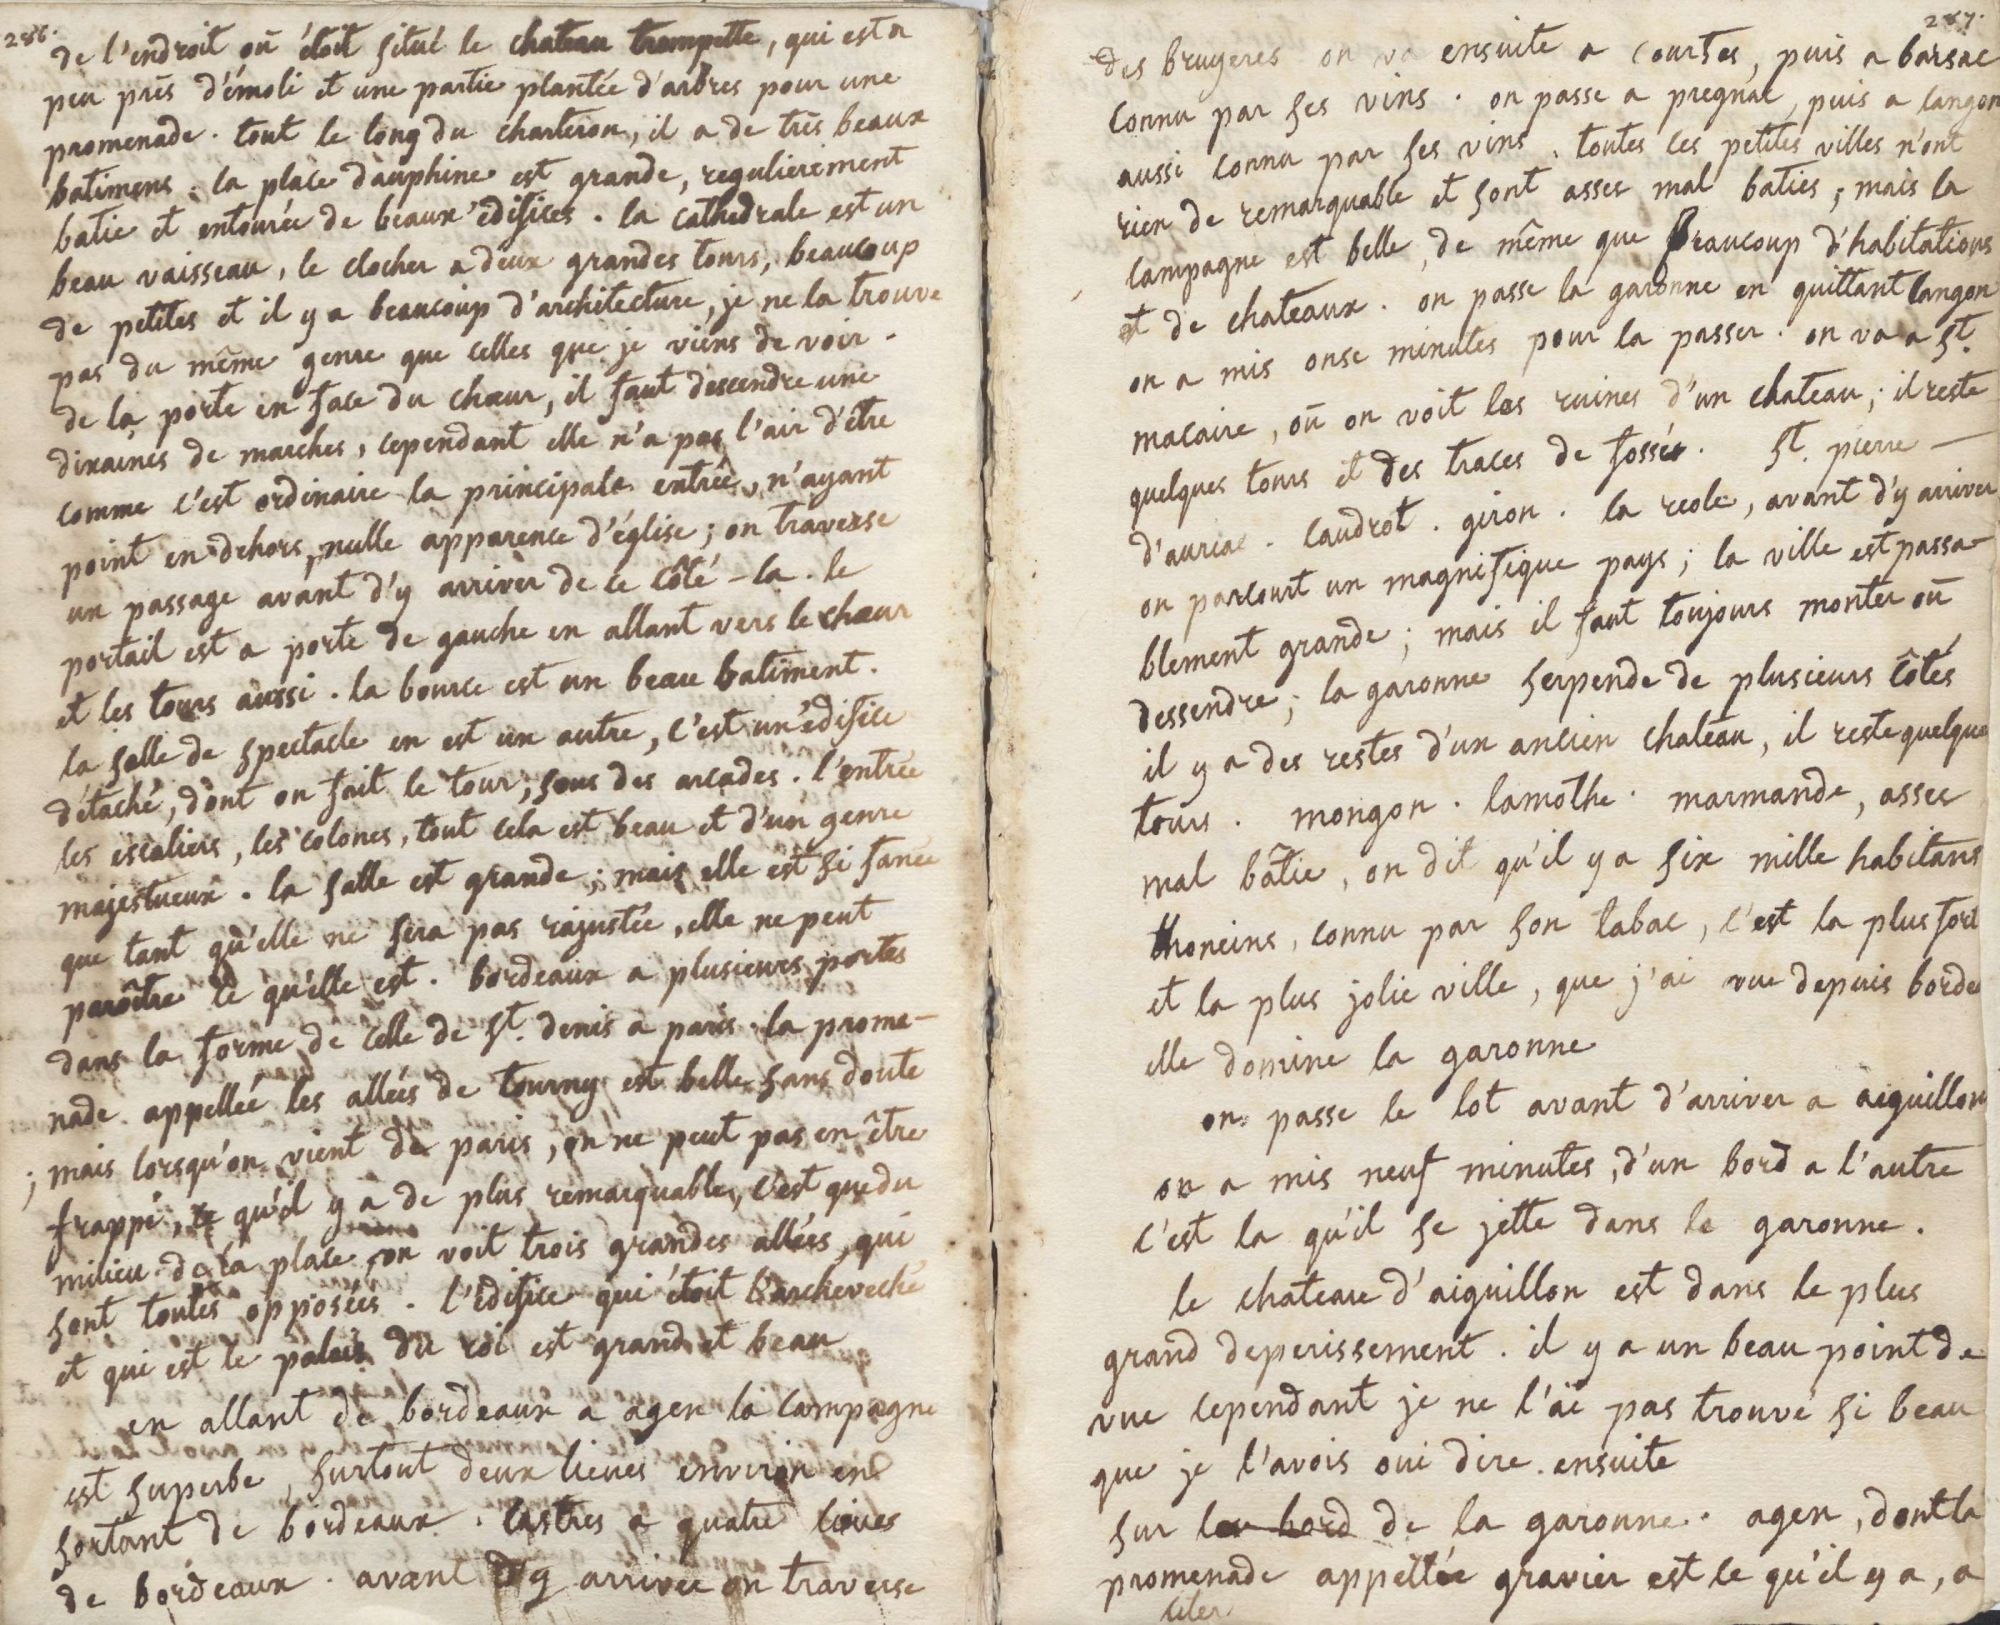 286.
de l'endroit où étoit situé le chateau trompette, qui est a
peu près d'émoli et une partie plantée d'arbres pour une
promenade. tout le long du charteron, il a de très beaux
batimens. la place dauphine est grande, regulierement
batie et entourée de beaux édifices. la cathedrale est un
beau vaisseau, le clocher a deux grandes tours, beaucoup
de petites et il y a beaucoup d'architecture, je ne la trouve
pas du même genre que celles que je viens de voir.
de la porte en face du chœur, il faut descendre une
dixaines de marches, cependant elle n'a pas l'air d'être
comme c'est ordinaire la principale entrée, n'ayant
point en dehors, nulle apparence d'église; on traverse
un passage avant d'y arriver de ce côté-la. le
portail est a porte de gauche en allant vers le chœur
et les tours aussi. la bource est un beau batiment.
la salle de spectacle en est un autre, c'est un édifice
détaché, dont on fait le tour, sous des arcades. l'entrée
les escaliers, les colones, tout cela est beau et d'un genre
majestueux. la salle est grande; mais elle est si fanée
que tant qu'elle ne sera pas rajustée, elle ne peut
parôitre ce qu'elle est. bordeaux a plusieurs portes
dans la forme de celle de st. denis a paris. la prome-
nade appellée les allées de tourny est belle sans doute
; mais lorsqu'on vient de paris, on ne peut pas en être
frappé, ce qu'il y a de plus remarquable, c'est que du
milieu de la place, on voit trois grandes allées, qui
sont toutes opposées. l'édifice qui étoit l'archeveché
et qui est le palais du roi est grand et beau
en allant de bordeaux a agen la campagne
est superbe, surtout deux lieues environ en
sortant de bordeaux. castres a quatre lieues
de bordeaux. avant d'y arriver on traverse
287.
des bruyeres on va ensuite a courtes, puis a barsac
connu par ses vins. on passe a pregnac, puis a langon
aussi connu par ses vins. toutes ces petites villes n'ont
rien de remarquable et sont asses mal baties; mais la
campagne est belle, de même que beaucoup d'habitations
et de chateaux. on passe la garonne en quittant langon
on a mis onse minutes pour la passer. on va a st.
macaire, où on voit les ruines d'un chateau; il reste
quelques tours et des traces de fossés. st. pierre —
d'auriac. caudrot. giron. la reole, avant d'y arriver
on parcourt un magnifique pays; la ville est passa-
blement grande; mais il faut toujours monter où
dessendre; la garonne serpende de plusieurs côtés
il y a des restes d'un ancien chateau, il reste quelque
tours. mongon. lamothe. marmande, asses
mal bâtie, on dit qu'il y a six mille habitans
thoneins, connu par son tabac, c'est la plus fort
et la plus jolie ville, que j'ai vue depuis borde
elle domine la garonne
on passe le lot avant d'arriver a aiguillon
on a mis neuf minutes, d'un bord a l'autre
c'est la qu'il se jette dans le garonne.
le chateau d'aiguillon est dans le plus
grand deperissement. il y a un beau point de
vue cependant je ne l'ai pas trouvé si beau
que je l'avois oui dire. ensuite
sur bord de la garonne. agen, dont la
promenade appellée gravier est ce qu'il y a, a
citer